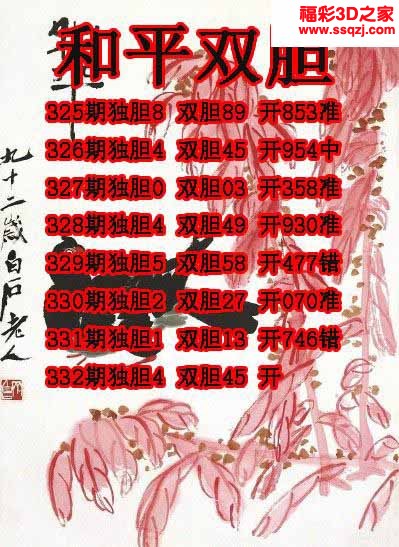 福彩3D之家
www.ssqzj.com
和平双胆
325期独胆8 双胆89 开853准
326期独胆4 双胆45 开954中
327期独胆0 双胆03 开358准
328期独胆4 双胆49 开930准
329期独胆5 双胆58 开477错
330期独胆2 双胆27 开070准
331期独胆1 双胆13 开746错
332期独胆4 双胆45 开
九十二岁白石老人